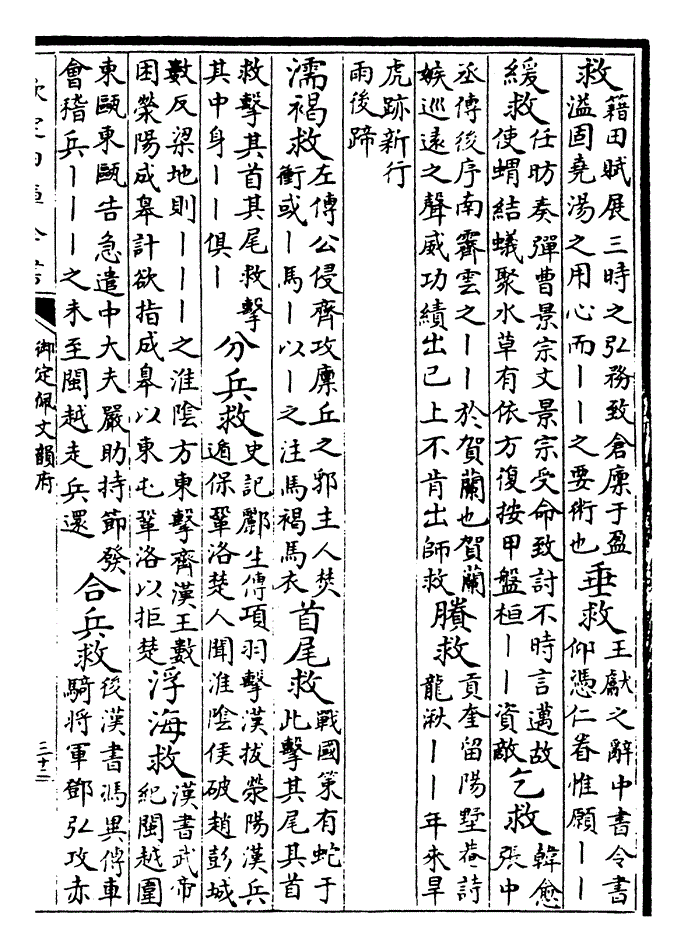 救籍田賦展三時之弘務致倉廩于盈溢固堯湯之用心而丨丨之要術也垂救王獻之辭中書令書仰憑仁眷惟願丨丨
緩救任昉奏彈曹景宗文景宗受命致討不時言邁故使蝟結蟻聚水草有依方復按甲盤桓丨丨資敵乞救韓愈張中
丞傳後序南霽雲之丨丨於賀蘭也賀蘭嫉巡遠之聲威功績出己上不肯出師救賸救貢奎留陽墅菴詩龍湫丨丨年來旱
虎跡新行雨後蹄
濡褐救左傳公侵齊攻廩丘之郛主人焚衝或丨馬丨以丨之注馬褐馬衣首尾救戰國策有蛇于此擊其尾其首
救擊其首其尾救擊其中身丨丨俱丨分兵救史記酈生傳項羽擊漢拔滎陽漢兵遁保鞏洛楚人聞淮陰侯破趙彭城
數反梁地則丨丨丨之淮陰方東擊齊漢王數困滎陽成皋計欲指成皋以東屯鞏洛以拒楚浮海救漢書武帝紀閩越圍
東甌東甌告急遣中大夫嚴助持節發會稽兵丨丨丨之未至閩越走兵還合兵救後漢書馮異傳車騎將軍鄧弘攻赤
欽定四庫全書
御定佩文韻府
三十二